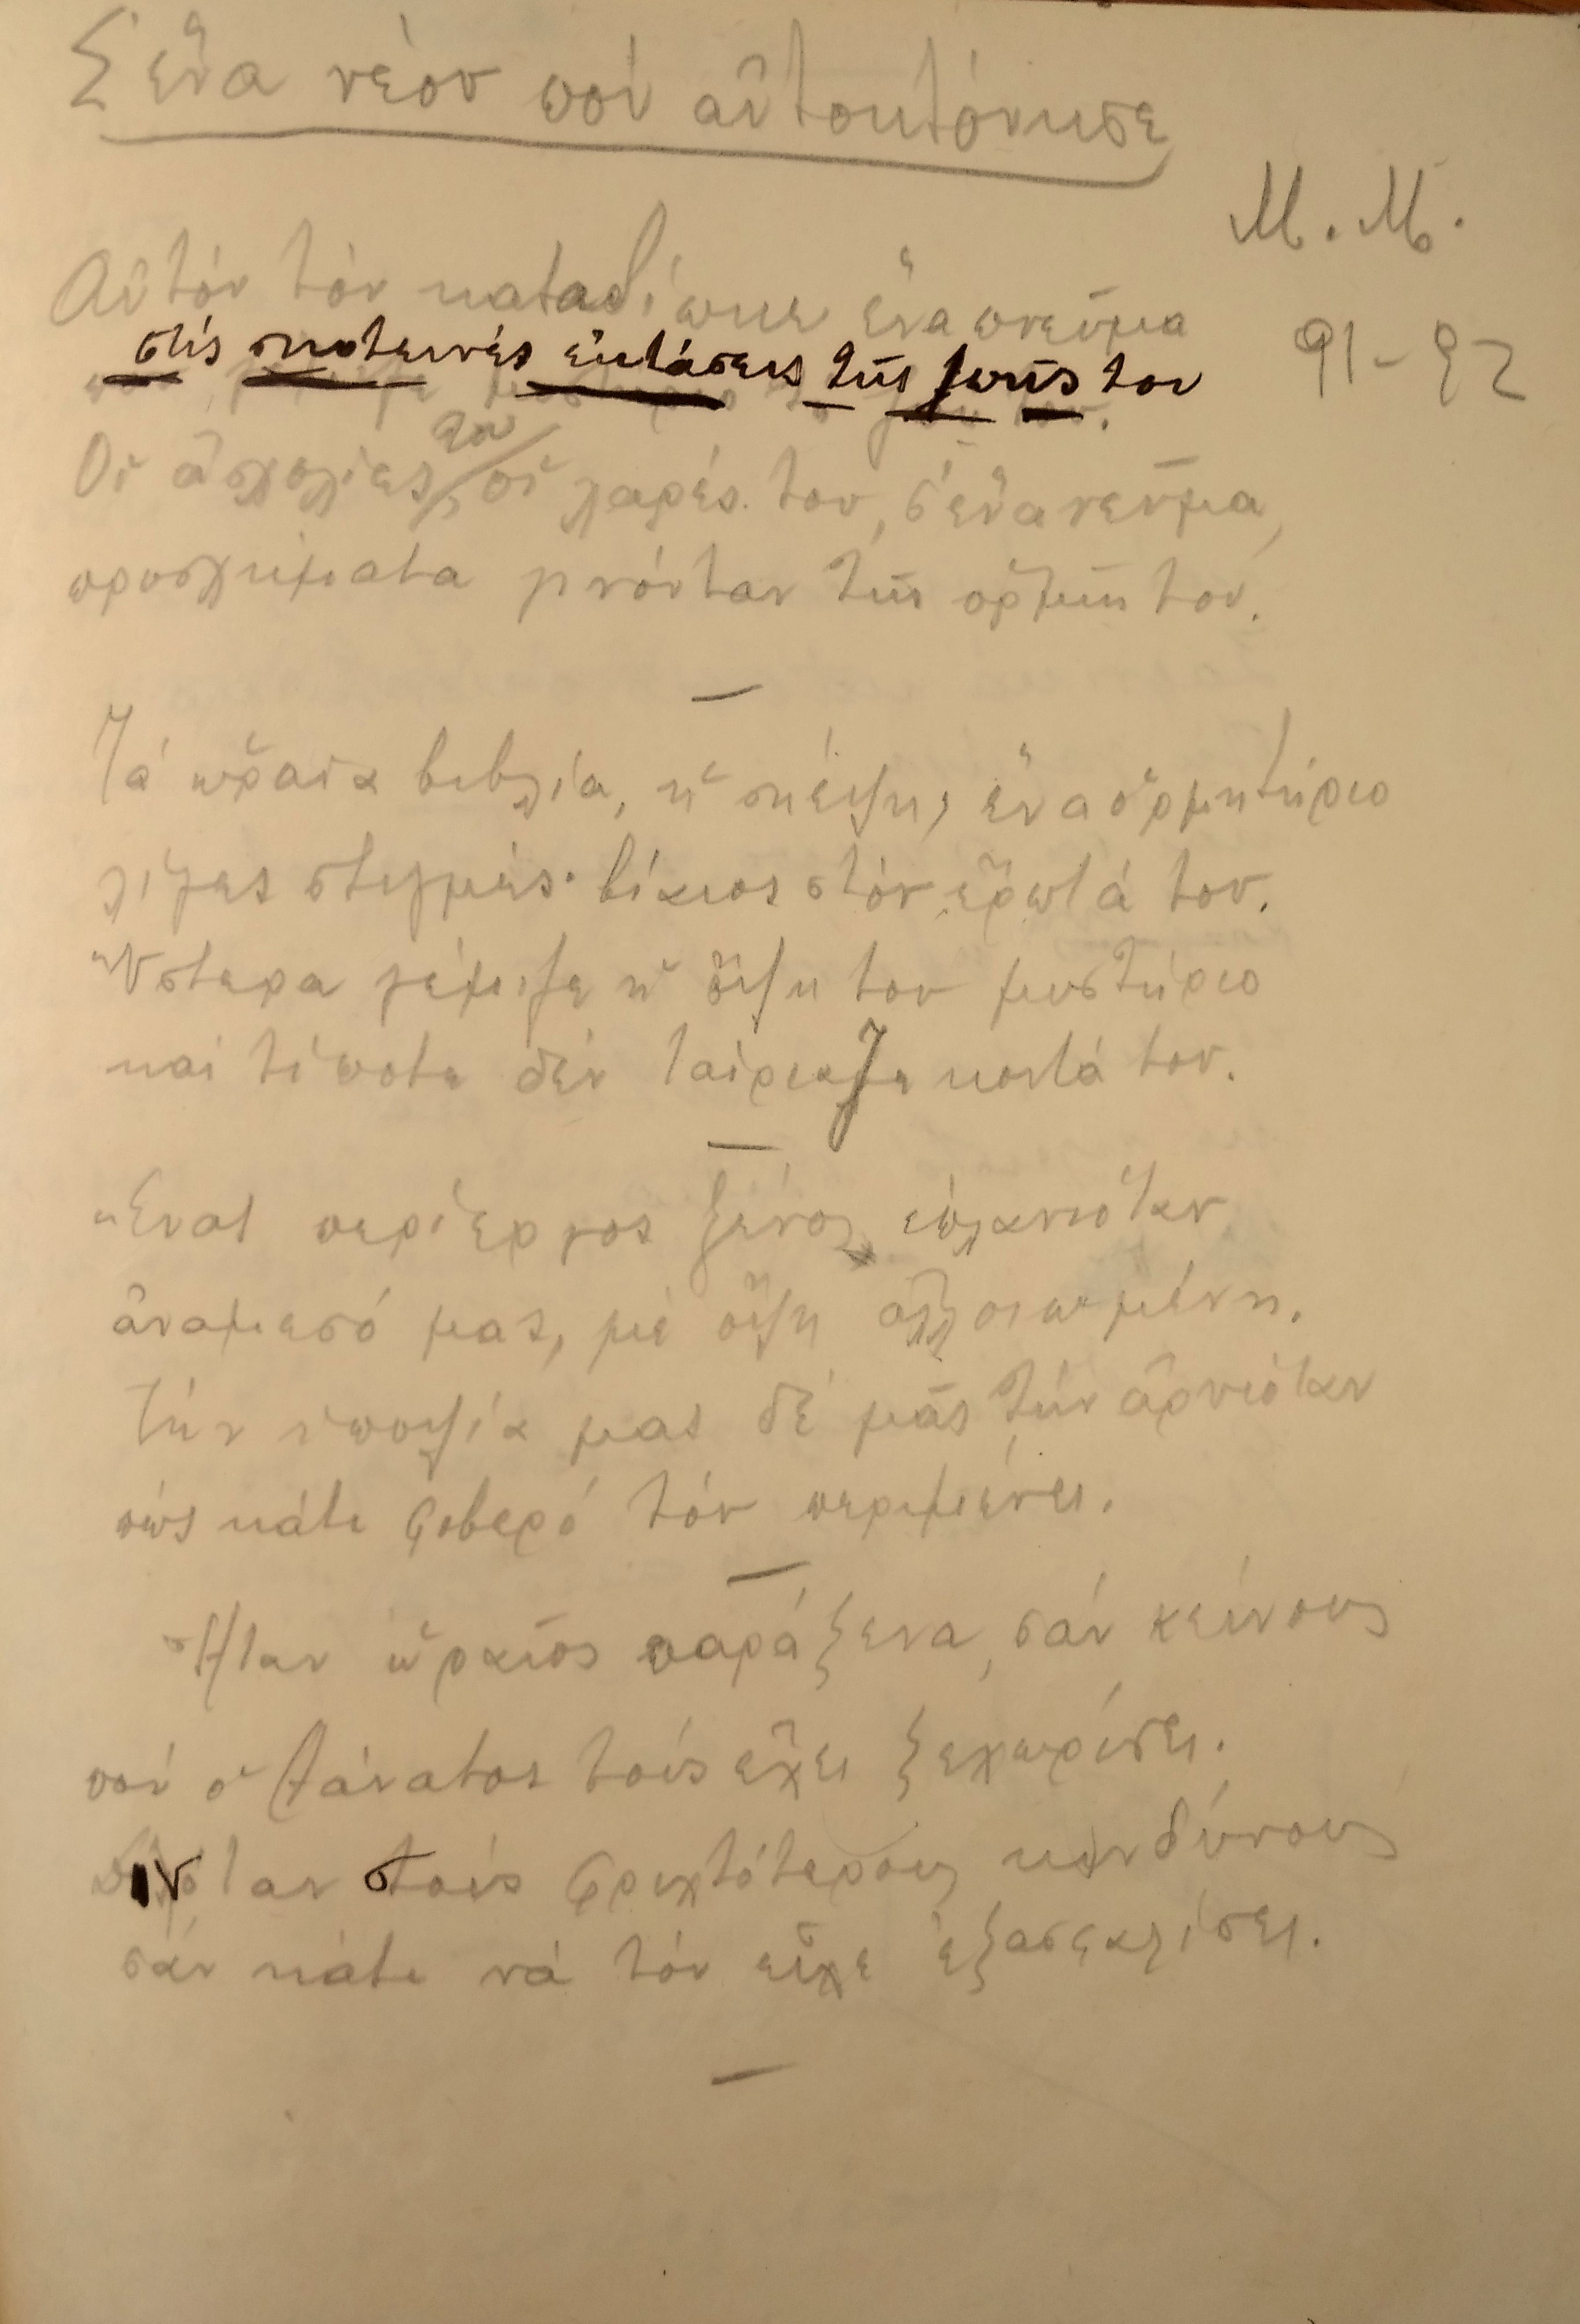 Σ' ἕνα νέον ποὺ αὐτοκτόνησε
Μ. Μ.
91-92
Αὐτὸν τὸν καταδίωκε ἕνα πνεῦμα
στὶς σκοτεινὲς ἐκτάσεις τῆς ζωῆς του
Οἱ ἀσχολίες, οἱ χαρές του, σ' ἕνα νεῦμα,
προσχήματα γινόνταν τῆς ὁρμῆς του.
Τὰ ὡραῖα βιβλία, ἡ σκέψη, ἕνα ὁρμητήριο
λίγες στιγμές· βίαιος στὸν ἔρωτά του.
Ὕστερα γέμιζε ἡ ὄψη του μυστήριο
καὶ τίποτε δὲν ταίριαζε κοντά του.
Ἕνας περίεργος ξένος ἐπλανιόταν
ἀναμεσό μας, μὲ ὄψη ἀλλοιωμένη.
Τὴν ὑποψία μας δὲ μᾶς τὴν ἀρνιόταν
πὼς κάτι φοβερὸ τὸν περιμένει.
Ἦταν ὡραῖος παράξενα, σὰν κείνους
ποὺ ὁ θάνατος τοὺς ἔχει ξεχωρίσει.
στοὺς φριχτότερους κινδύνους
σὰν κάτι νὰ τὸν εἶχε ἐξασφαλίσει.